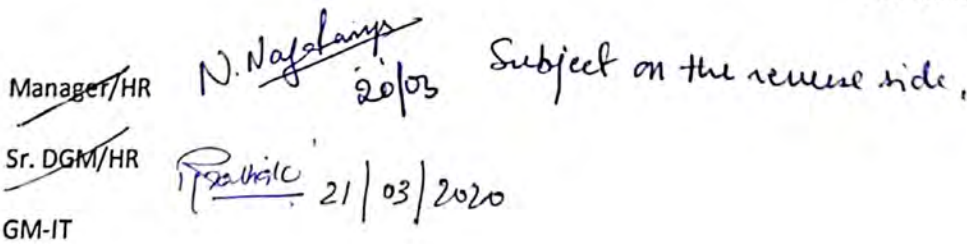 Manager/HR N. 20/03 Subject on the reverse side.
Sr. DGM/HR 21/03/2020
GM-IT